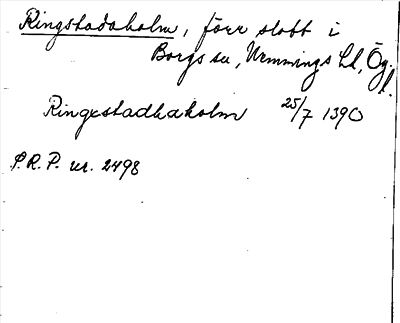 Ringstadaholm, förr slott i
Borgs sn, Memmings hd, Ög.
l.
Ringestadhaholm 25/7 1390
S.R.P. nr. 2498